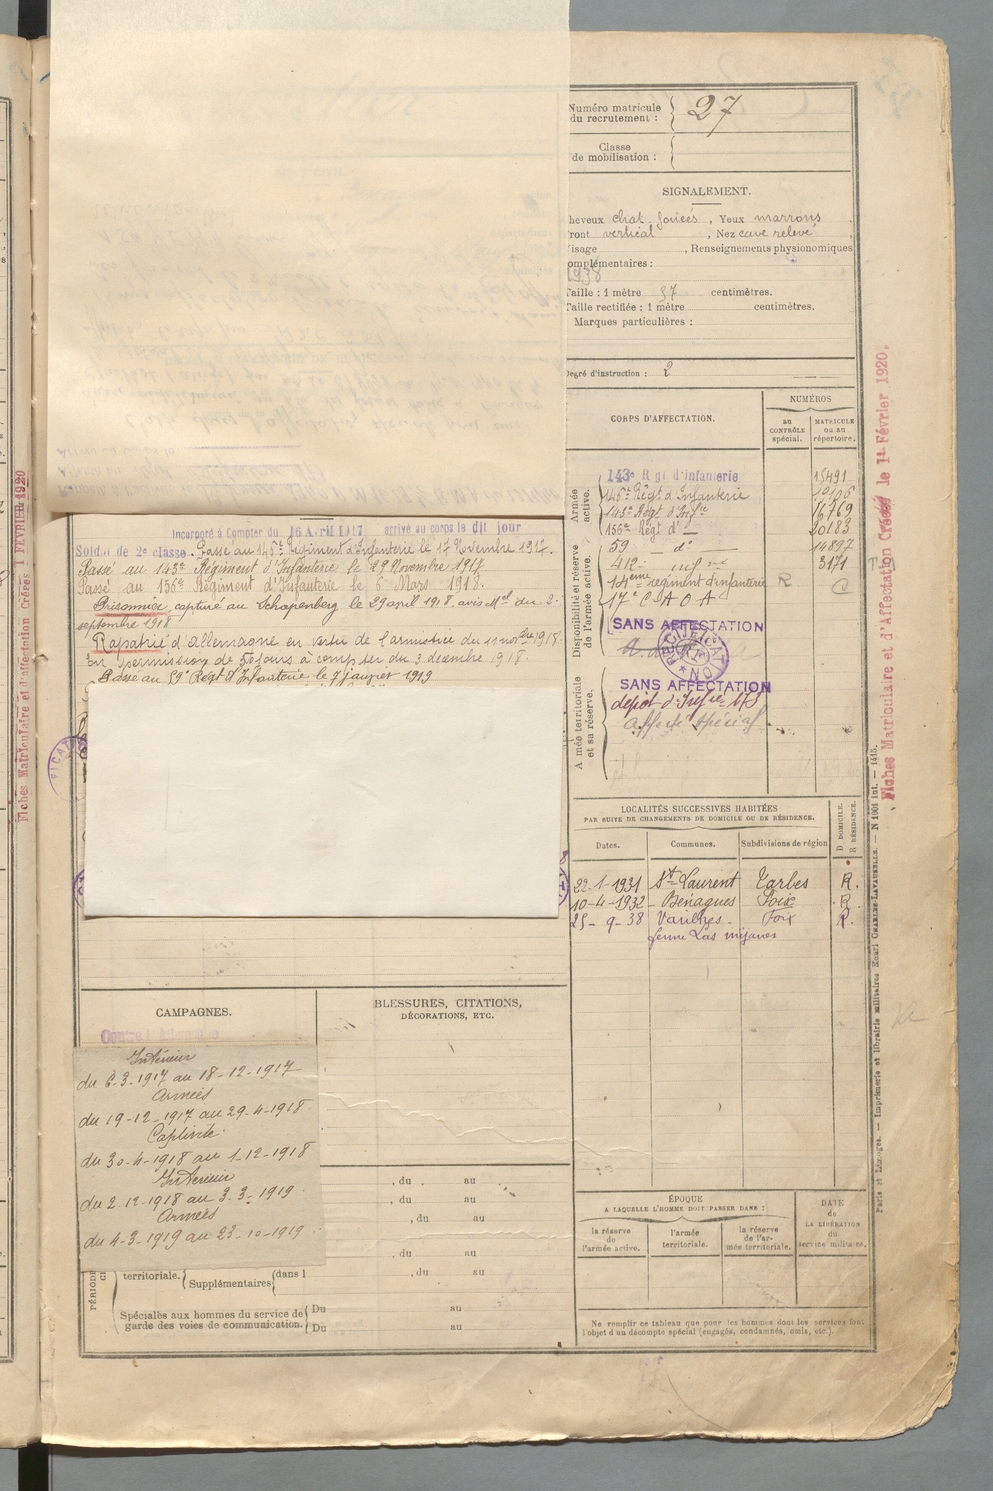 Numéro matricule
du recrutement : 27
Classe
de mobilisation :
SIGNALEMENT.
heveux chat foncés, Yeux marrons
ront vertical, Nez cave relevé
isage , Renseignements physionomiques
omplémentaires :
1938
Taille : 1 mètre 57 centimètres.
Taille rectifiée : 1 mètre centimètres.
Marques particulières :
Degré d'instruction : 2
CORPS D'AFFECTATION.
NUMÉROS
au
CONTRÔLE
spécial.
MATRICULE
ou au
répertoire.
Armée
active.
Disponibilité et réserve
de l'armée active.
A mée territoriale
et sa réserve.
143e R gt d'infanterie 15491
145e Régt d'Infanterie
143e Régt d'Infie 16769
156e Régt d° 20183
59 d° 14897
412e 3171
14eme régiment d'infanterie R C
17e C O A
SANS AFFECTATION
SANS AFFECTATION
dépôt d'Infie 173
Affecté Spécial
Incorporé à Compter du 16 Avril 1917 arrivé au corps le dit jour
Soldat de 2e classe. Passé au 145e Régiment d'Infanterie le 17 Novembre 1917.
Passé au 143e Régiment d'Infanterie le 29 Novembre 1917
Passé au 156e Régiment d'Infanterie le 6 Mars 1918.
Prisonnier, capturé au Schapenberg le 29 avril 1918. avis Mel du 2
septembre 1918
Rapatrié d'allemagne en vertu de l'armistice du 11 novbre 1918.
En permission de 30 jours à compter du 3 décembre 1918.
Passé au 59e Régt d'Infanterie le 7 janvier 1919
LOCALITÉS SUCCESSIVES HABITÉES
PAR SUITE DE CHANGEMENTS DE DOMICILE OU DE RÉSIDENCE.
Dates. Communes. Subdivisions de région
D DOMICILE.
R RÉSIDENCE.
22-1-1931 St Laurent Tarbes R.
10-4-1932 Bénagues Foix R
25-9-38 Varilhes Foix R.
ferme Las mijanes
CAMPAGNES.
Contre l'Allemagne
BLESSURES, CITATIONS,
DÉCORATIONS, ETC.
Intérieur
du 6-3-1917 au 18-12-1917
Armées
du 19-12-1917 au 29-4-1918
Captivité
du 30-4-1918 au 1-12-1918
Intérieur
du 2-12-1918 au 3-3-1919
Armées
du 4-3-1919 au 23-10-1919
, du au
, du au
, du au
, du au
, du au
territoriale. Supplémentaires dans l
Spéciales aux hommes du service de
garde des voies de communication.
Du au
Du au
ÉPOQUE
A LAQUELLE L'HOMME DOIT PASSER DANS :
la réserve
de
l'armée active.
l'armée
territoriale.
la réserve
de l'ar-
mée territoriale.
DATE
de
LA LIBÉRATION
du
service militaire.
Ne remplir ce tableau que pour les hommes dont les services font
l'objet d'un décompte spécial (engagés, condamnés, omis, etc.).
Fiches Matriculaire et d'Affectation Créées le 1er Février 1920.
Fiches Matriculaire et d'Affectation Créées 1 FEVRIER 1920
Paris et Limoges. — Imprimerie et librairie militaires Henri CHARLES-LAVAUZELLE. — N 1001 int. — 1415.